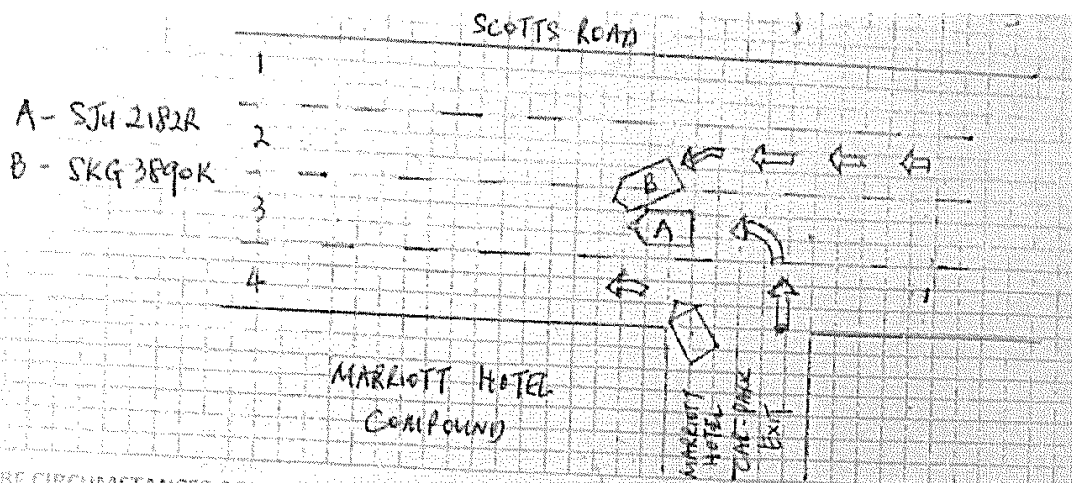 SCOTTS ROAD
1
A - SJU 2182R
2
B - SKG 3890K
B
3
A
4
MARRIOTT HOTEL
COMPOUND
MARRIOTT
HOTEL
CAR-PARK
EXIT